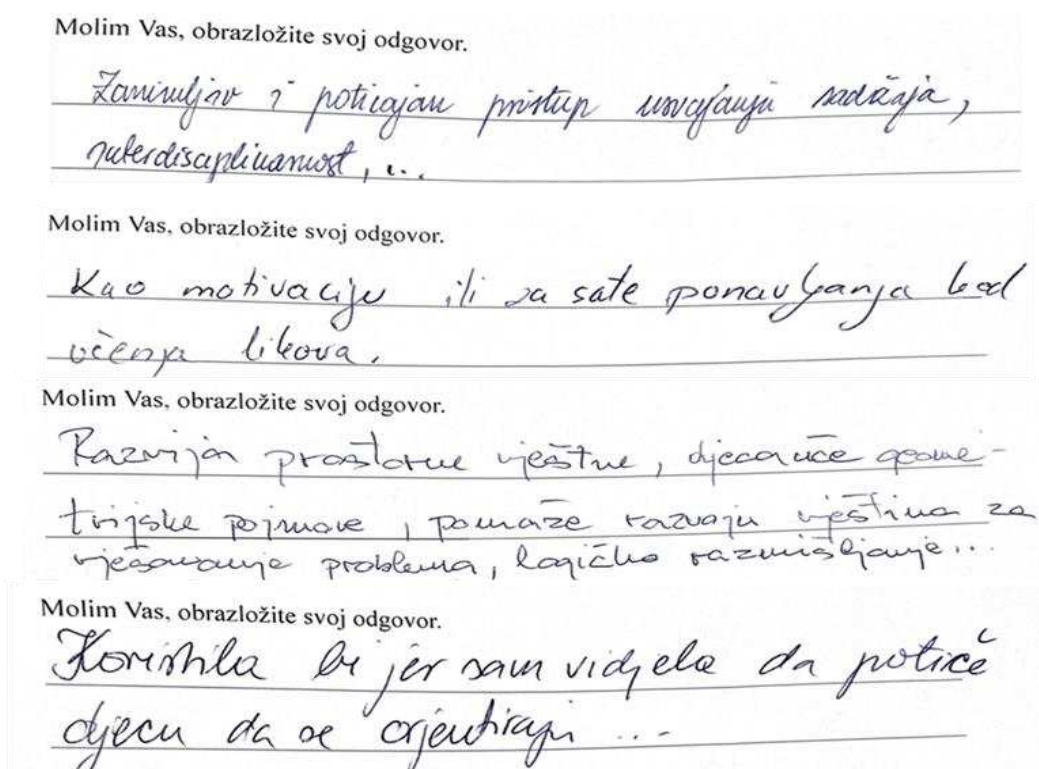 Molim Vas, obrazložite svoj odgovor.
Zanimljiv i poticajan pristup usvajanju sadržaja,
interdisciplinarnost, ...
Molim Vas, obrazložite svoj odgovor.
Kao motivaciju ili za sate ponavljanja kod
učenja likova.
Molim Vas, obrazložite svoj odgovor.
Razvija prostorne vještine, djeca uče geome-
trijske pojmove, pomaže razvoju vještina za
rješavanje problema, logičko razmišljanje...
Molim Vas, obrazložite svoj odgovor.
Koristila bi jer sam vidjela da potiče
djecu da se orjentiraju ...